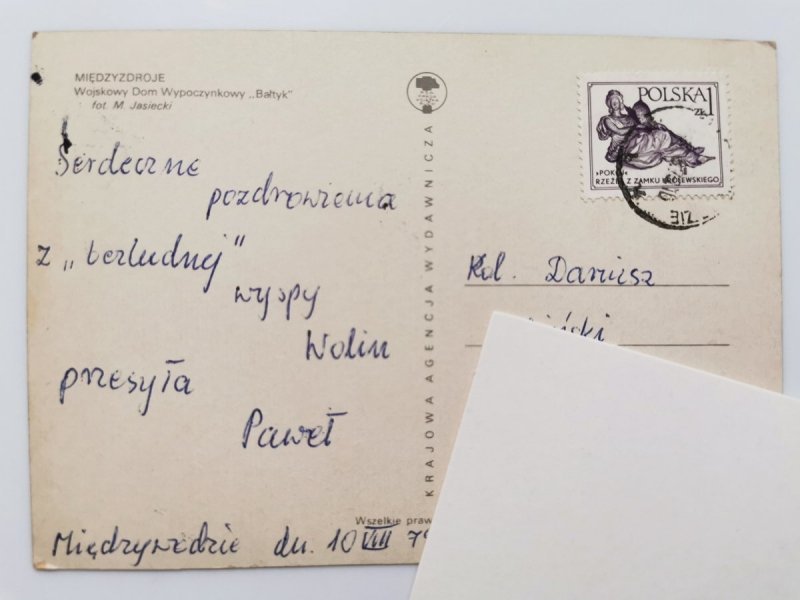 MIĘDZYZDROJE
Wojskowy Dom Wypoczynkowy „Bałtyk"
fot. M. Jasiecki
Serdeczne
pozdrowienia
z „bezludnej"
wyspy
Wolin
przesyła
Paweł
Międzywodzie dn. 10 VIII 79
KRAJOWA AGENCJA WYDAWNICZA
Wszelkie praw
POLSKA 1
ZŁ
»POKÓJ«
RZEŹBA Z ZAMKU KRÓLEWSKIEGO
Kol. Dariusz